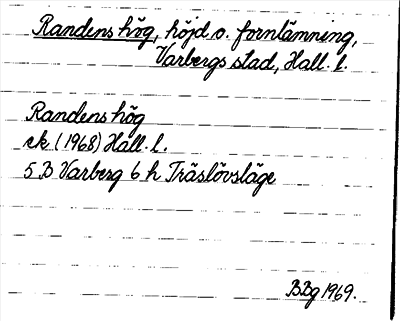 Randens hög, höjd o. fornlämning,
Varbergs stad, Hall. l.
Randens hög
ek (1968) Hall. l.
5 B Varberg 6 h Träslövsläge
BBg 1969.